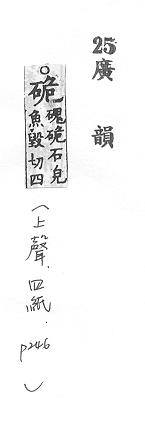 25廣韻
○硊
磈硊石皃
魚毀切四
（上聲．四紙．P246）